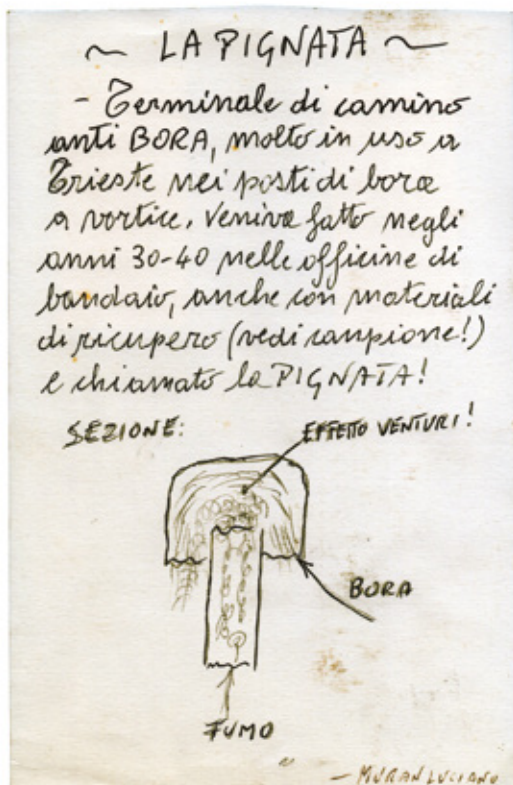 ~ LA PIGNATA ~
- Terminale di camino
anti BORA, molto in uso a
Trieste nei posti di bora
a vortice. Veniva fatto negli
anni 30-40 nelle officine di
bandaio, anche con materiali
di ricupero (vedi campione!)
e chiamato la PIGNATA!
SEZIONE:
EFFETTO VENTURI!
BORA
FUMO
- MURAN LUCIANO